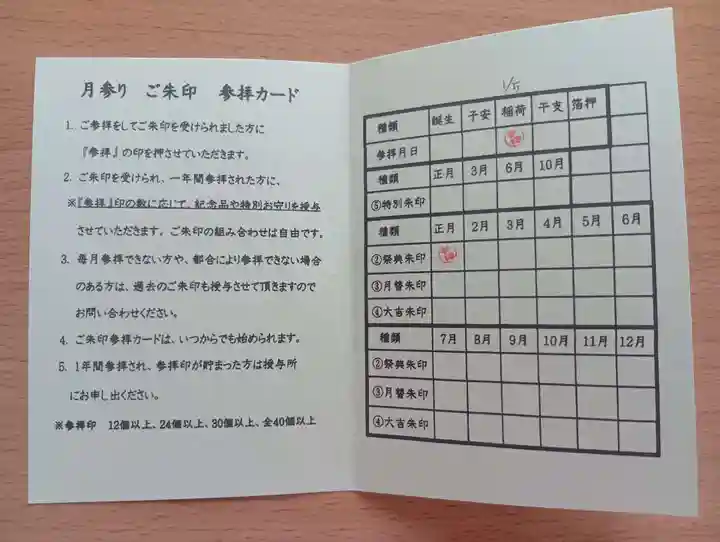 月参り ご朱印 参拝カード
1. ご参拝をしてご朱印を受けられました方に
『参拝』の印を押させていただきます。
2. ご朱印を受けられ、一年間参拝された方に、
※『参拝』印の数に応じて、紀念品や特別お守りを授与
させていただきます。ご朱印の組み合わせは自由です。
3. 毎月参拝できない方や、都合により参拝できない場合
のある方は、過去のご朱印も授与させて頂きますので
お問い合わせください。
4. ご朱印参拝カードは、いつからでも始められます。
5. 1年間参拝され、参拝印が貯まった方は授与所
にお申し出ください。
※参拝印 12個以上、24個以上、30個以上、全40個以上
種類 誕生 子安 稲荷 干支 箔押
参拝月日
種類 正月 3月 6月 10月
⑤特別朱印
種類 正月 2月 3月 4月 5月 6月
②祭典朱印
③月替朱印
④大吉朱印
種類 7月 8月 9月 10月 11月 12月
②祭典朱印
③月替朱印
④大吉朱印